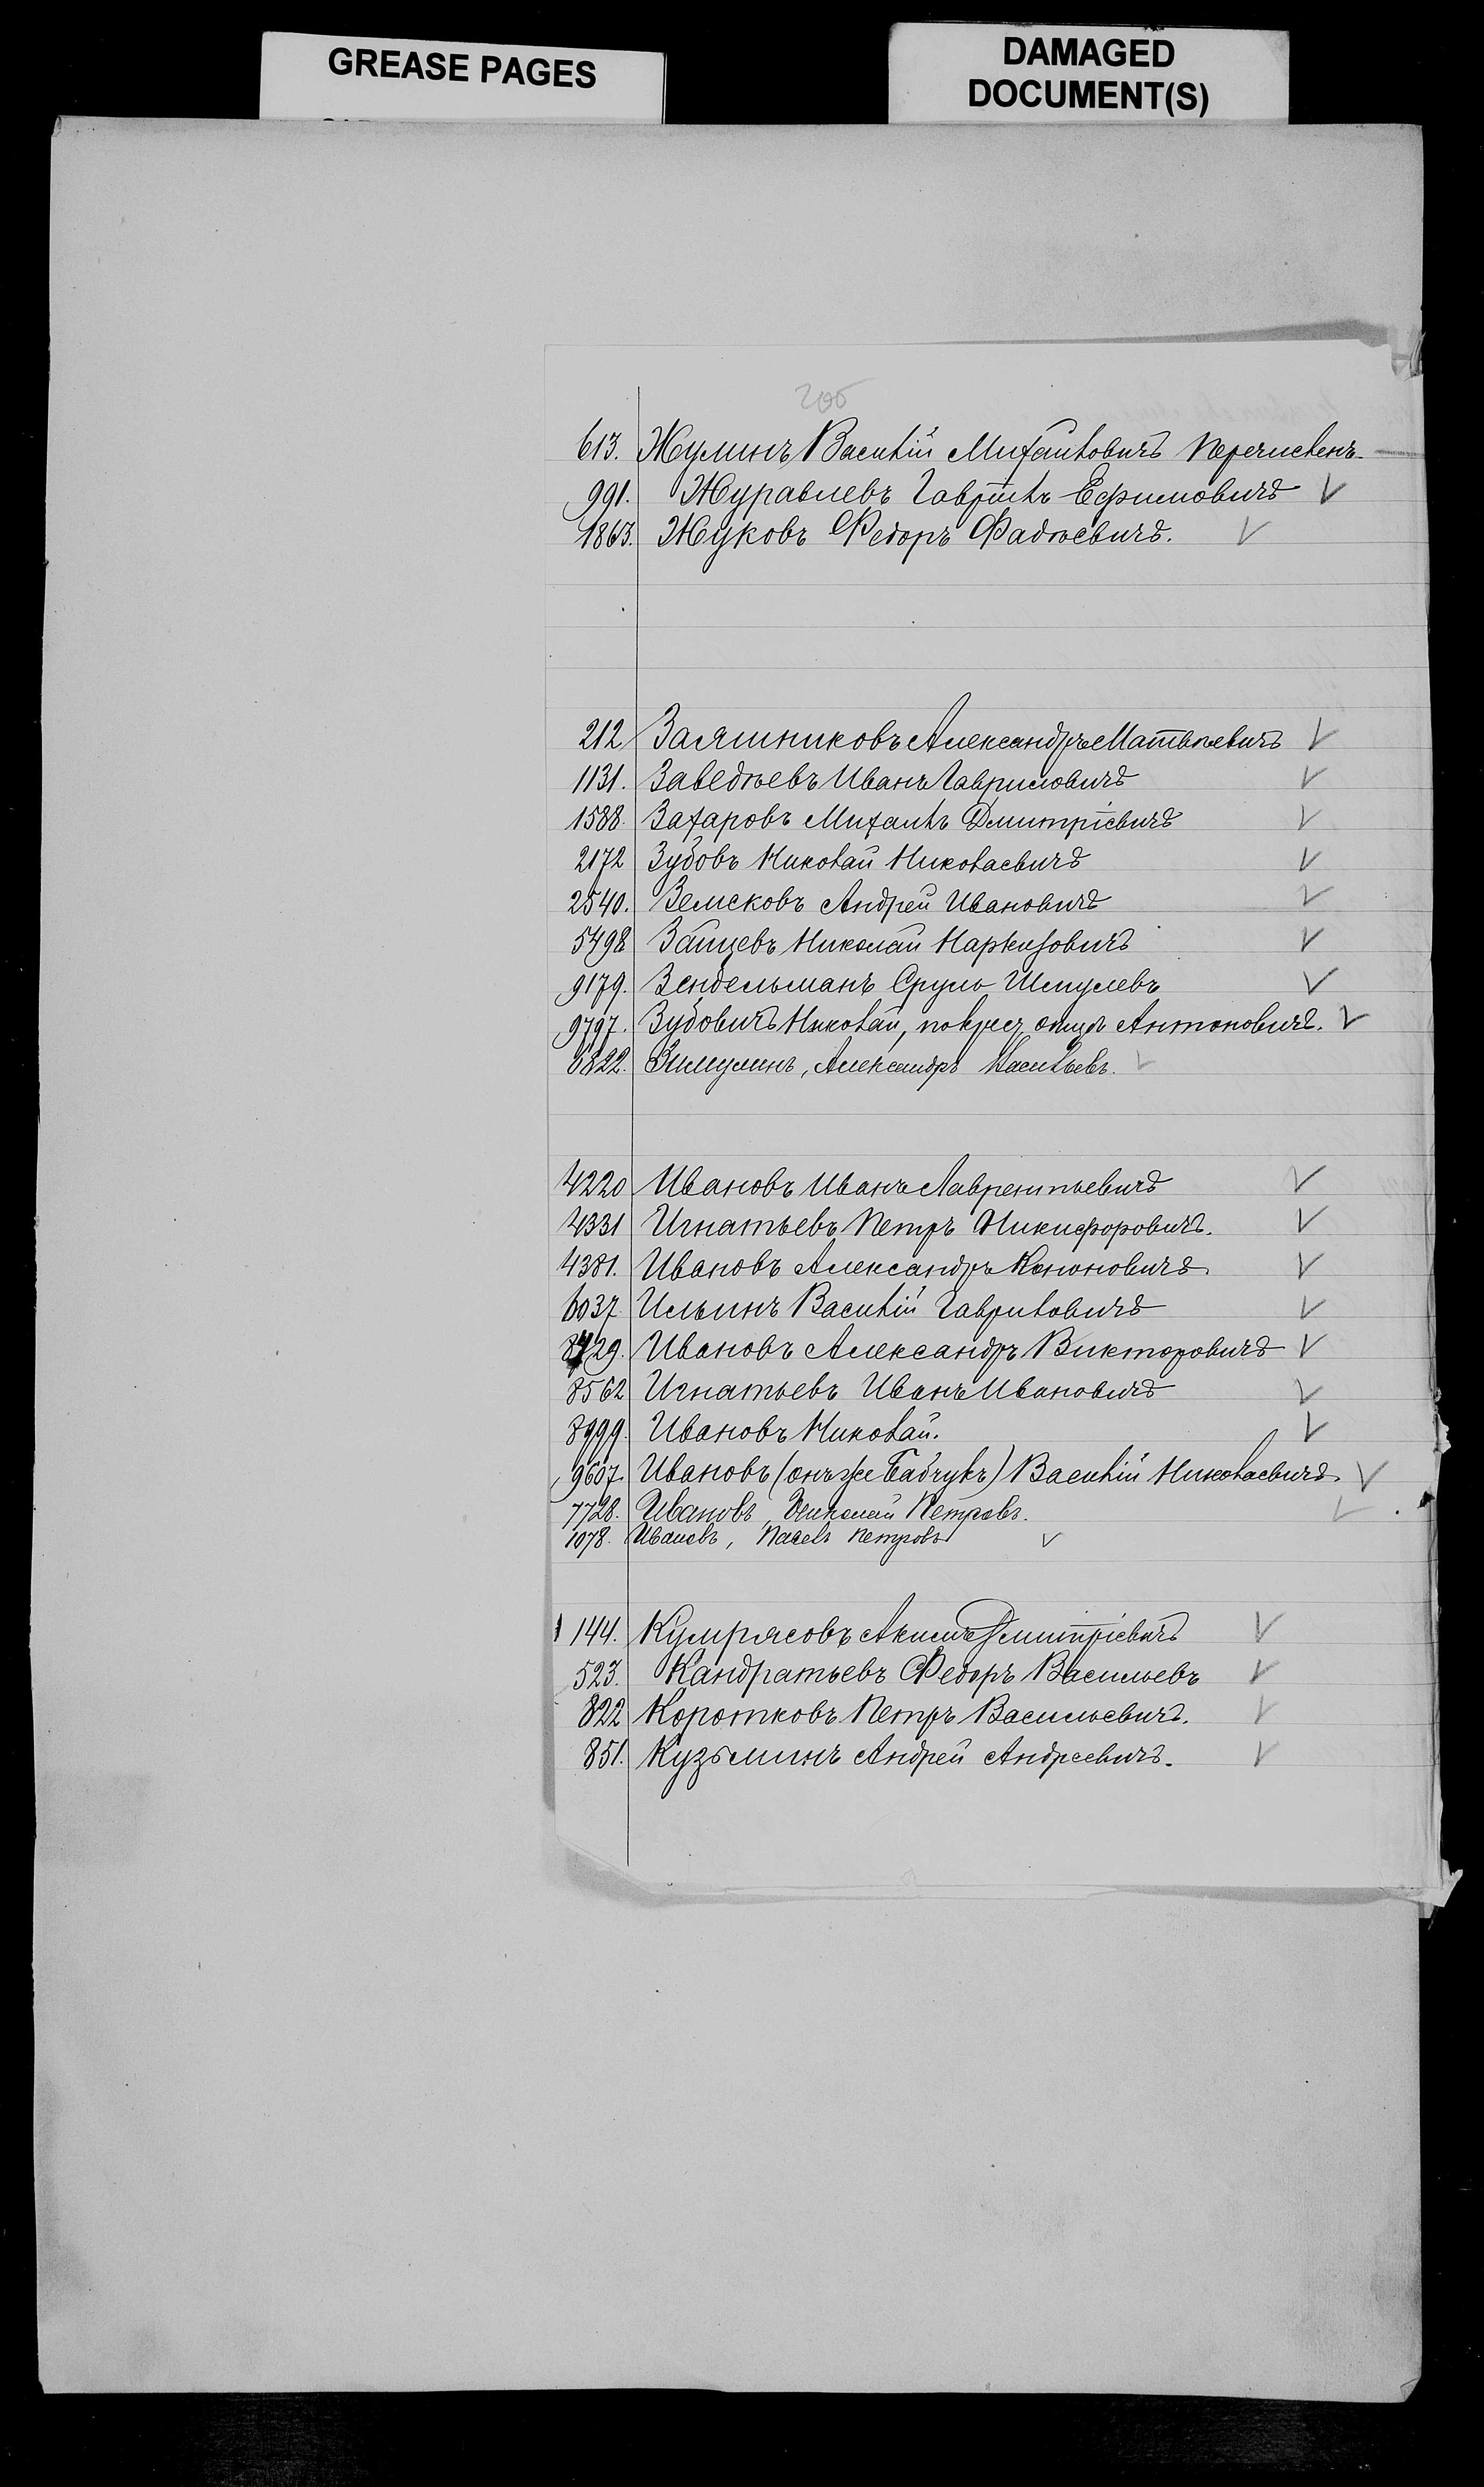 GREASE PAGES
DAMAGED
DOCUMENT(S)
613. Жулинъ Василій Михайловичъ перечисленъ
991. Журавлевъ Гавріилъ Ефимовичъ
1863. Жуковъ Федоръ Фадѣевичъ.
212 Залятниковъ Александръ Матвѣевичъ
1131. Заведѣевъ Иванъ Гавриловичъ
1588. Захаровъ Михаилъ Дмитріевичъ
2172 Зубовъ Николай Николаевичъ
2540. Земсковъ Андрей Ивановичъ
5498 Зайцевъ Николай Наркизовичъ
9179. Зендельманъ Сруль Шмулевъ
9797. Зубовичъ Николай, по крест. отцу Антоновичъ.
6822. Зимулинъ, Александръ Васильевъ.
4220 Ивановъ Иванъ Лаврентьевичъ
4331 Игнатьевъ Петръ Никифоровичъ.
4381. Ивановъ Александръ Кононовичъ
6037 Ильинъ Василій Гавриловичъ
8429. Ивановъ Александръ Викторовичъ
8562 Игнатьевъ Иванъ Ивановичъ
8999. Ивановъ Николай.
9607. Ивановъ (онъ же Бабчукъ) Василій Николаевичъ
7728. Ивановъ, Николай Петровъ.
1078. Ивановъ, Павелъ Петровъ
144. Кумрясовъ Акимъ Дмитріевичъ
523. Кандратьевъ Федоръ Васильевъ
822 Коротковъ Петръ Васильевичъ.
851. Кузьминъ Андрей Андреевичъ.